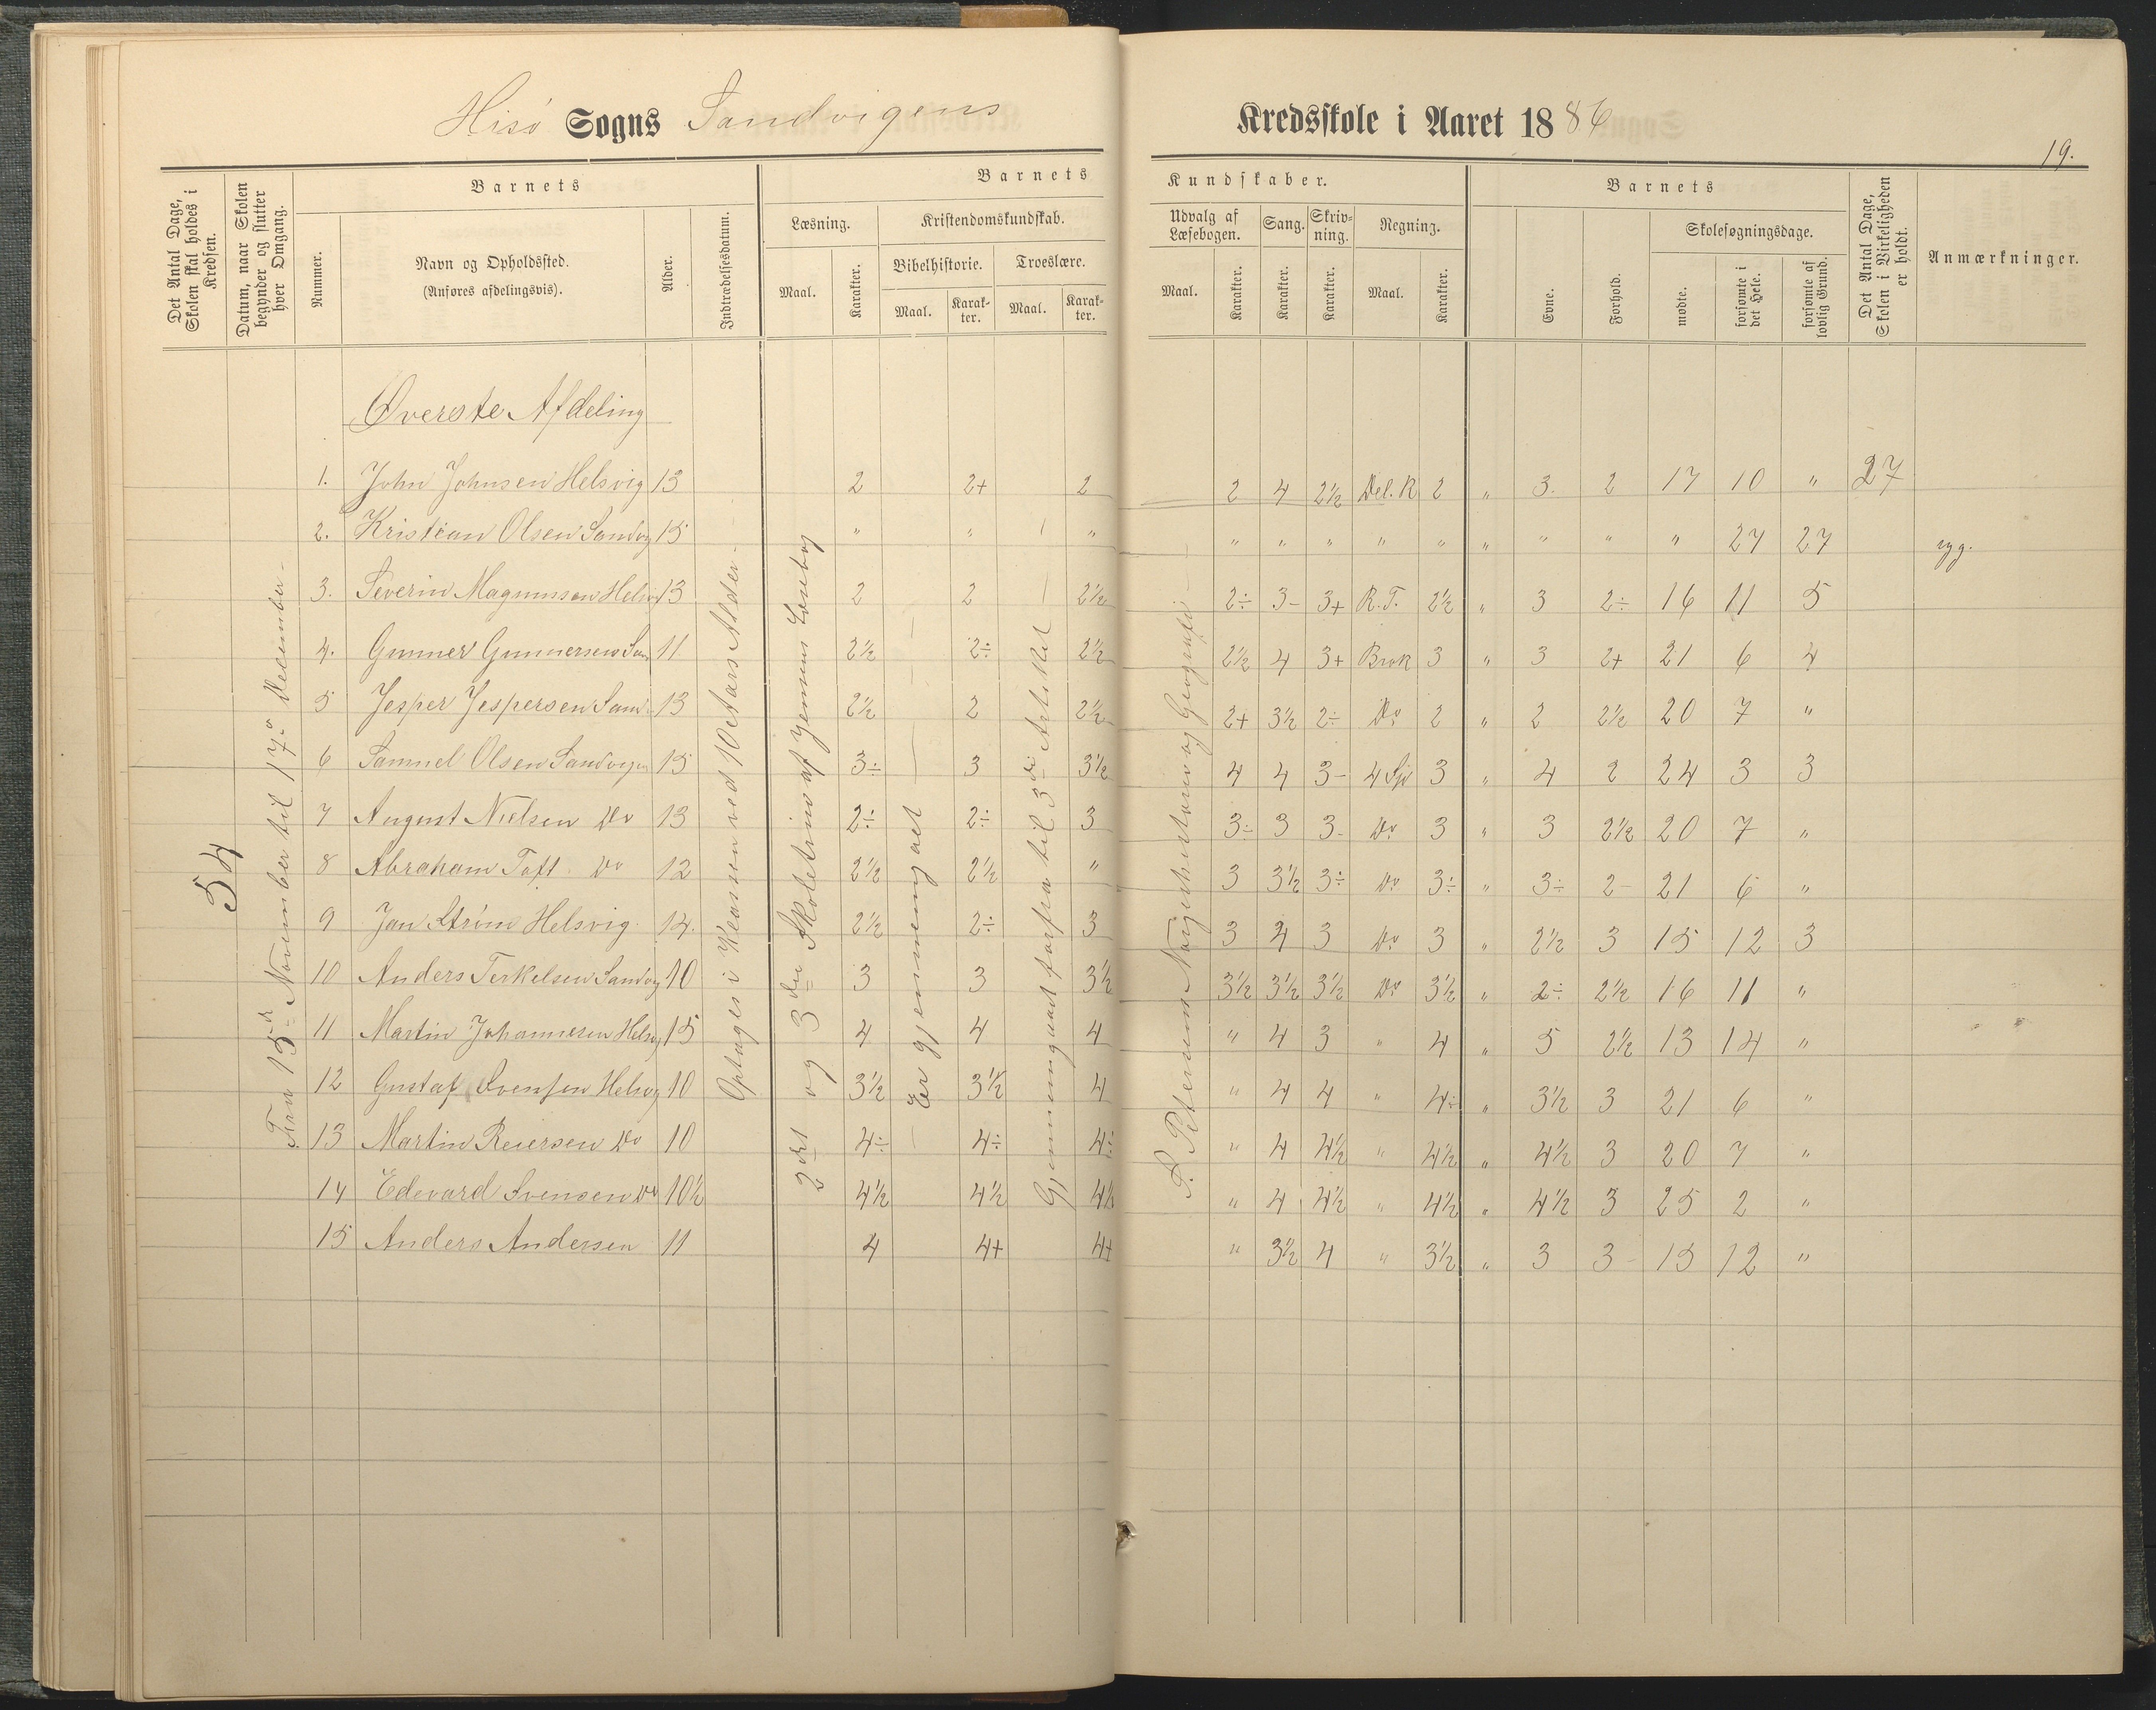 Hisö Sogns Sandvigens Kredsskole i Aaret 1886
19.
Det Antal Dage, Skolen skal holdes i Kredsen.
Datum, naar Skolen begynder og slutter hver Omgang.
Barnets
Nummer.
Navn og Opholdssted.
(Anføres afdelingsvis).
Alder.
Indtrædelsesdatum.
Barnets Kundskaber.
Læsning.
Maal.
Karakter.
Kristendomskundskab.
Bibelhistorie.
Maal.
Karakter.
Troeslære.
Maal.
Karakter.
Udvalg af Læsebogen.
Maal.
Karakter.
Sang.
Karakter.
Skrivning.
Karakter.
Regning.
Maal.
Karakter.
Barnets
Evne.
Forhold.
Skolesøgningsdage.
mødte.
forsømte i det Hele.
forsømte af lovlig Grund.
Det Antal Dage, Skolen i Virkeligheden er holdt.
Anmærkninger.
Øverste Afdeling
1. John Johnsen Helsvig 13 2 2+ 2 2 4 2½ Del. R 2 " 3. 2 17 10 " 27
2. Kristian Olsen Sandvg 15 " " " " " " " " " " " " 27 27 syg.
3. Severin Magnussen Helsv 13 2 2 2½ 2÷ 3- 3+ R.T. 2½ " 3 2÷ 16 11 5
4. Gunner Gunnersen San 11 2½ 2÷ 2½ 2½ 4 3+ Brøk 3 " 3 2+ 21 6 4
5 Jesper Jespersen Sand 13 2½ 2 2½ 2+ 3½ 2÷ Do 2 " 2 2½ 20 7 "
6 Samuel Olsen Sandvigen 15 3÷ 3 3½ 4 4 3- 4 Sp 3 " 4 2 24 3 3
7 August Nielsen Do 13 2÷ 2÷ 3 3÷ 3 3- Do 3 " 3 2½ 20 7 "
8 Abraham Toft Do 12 2½ 2½ " 3 3½ 3÷ Do 3÷ " 3÷ 2- 21 6 "
9 Jan Strøm Helsvig 14. 2½ 2÷ 3 3 4 3 Do 3 " 2½ 3 15 12 3
10 Anders Terkelsen Sandvg 10 3 3 3½ 3½ 3½ 3½ Do 3½ " 2÷ 2½ 16 11 "
11 Martin Johannesen Helsvg 15 4 4 4 " 4 3 " 4 " 5 2½ 13 14 "
12 Gustaf Svensen Helsvg 10 3½ 3½ 4 " 4 4 " 4÷ " 3½ 3 21 6 "
13 Martin Reiersen Do 10 4÷ 4÷ 4÷ " 4 4½ " 4½ " 4½ 3 20 7 "
14 Edevard Svensen Do 10½ 4½ 4½ 4½ " 4 4½ " 4½ " 4½ 3 25 2 "
15 Anders Andersen 11 4 4+ 4+ " 3½ 4 " 3½ " 3 3- 15 12 "
54
Fra 15de November til 17de December
Optages i Klassen ved 10 Aars Alder
2det og 3die Skoletrin af Jensens Læsebog
Er gjennemgaaet
Gjennemgaaet forfra til 3die Artikel
S. Petersens Norgeshistorie og Geografi